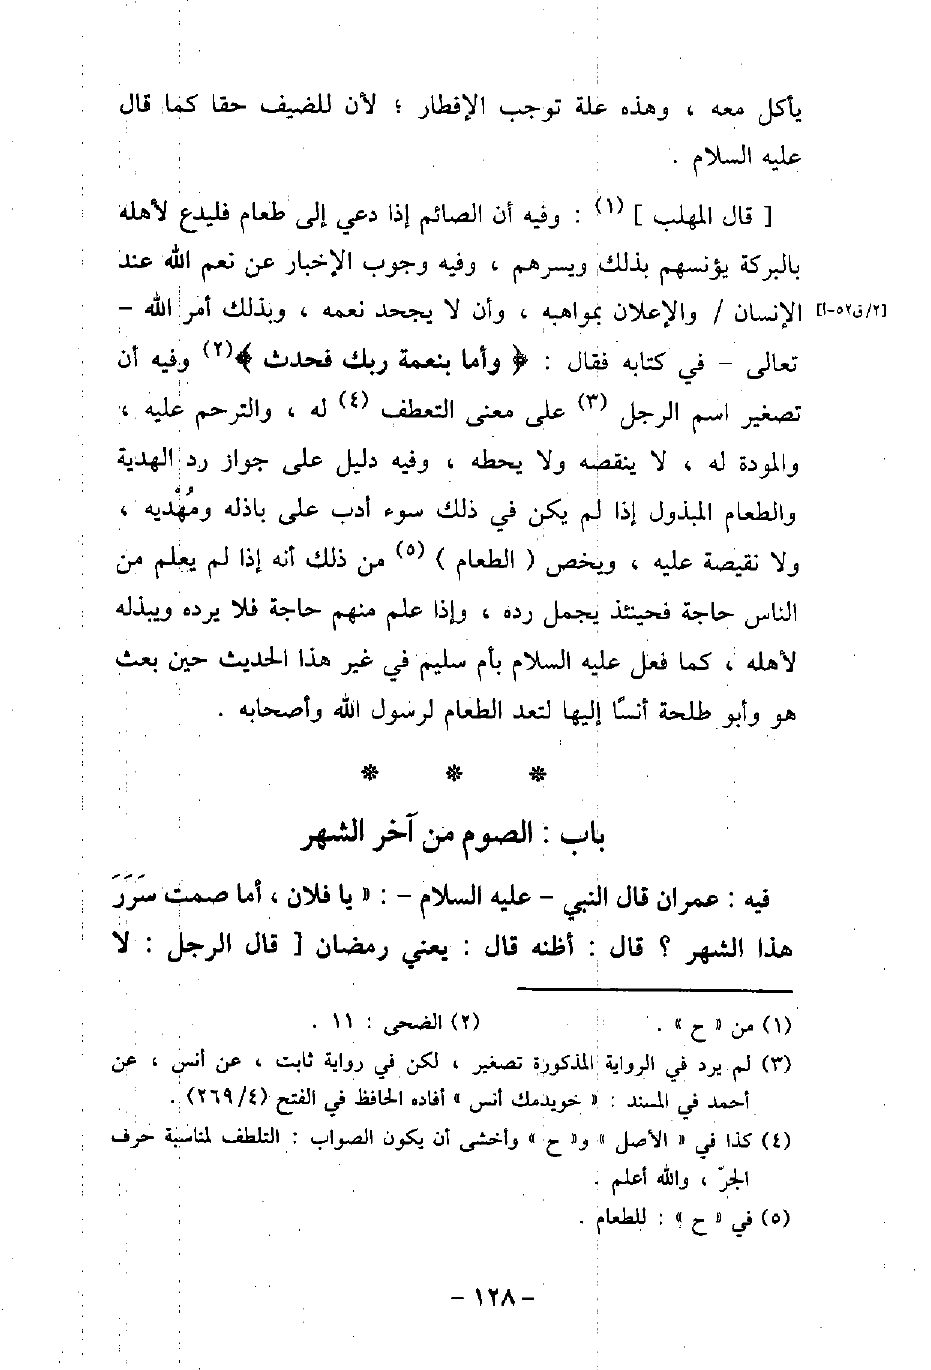 يأكل معه ، وهذه علة توجب الإفطار ؛ لأن للضيف حقا كما قال
عليه السلام .
[ قال المهلب ] (١) : وفيه أن الصائم إذا دعي إلى طعام فليدع لأهله
بالبركة يؤنسهم بذلك ويسرهم ، وفيه وجوب الإخبار عن نعم الله عند
[٢/ق٥٢-أ] الإنسان / والإعلان بمواهبه ، وأن لا يجحد نعمه ، وبذلك أمر الله –
تعالى – في كتابه فقال : ﴿ وأما بنعمة ربك فحدث ﴾(٢) وفيه أن
تصغير اسم الرجل (٣) على معنى التعطف (٤) له ، والترحم عليه ،
والمودة له ، لا ينقصه ولا يحطه ، وفيه دليل على جواز رد الهدية
والطعام المبذول إذا لم يكن في ذلك سوء أدب على باذله ومُهْديه ،
ولا نقيصة عليه ، ويخص ( الطعام ) (٥) من ذلك أنه إذا لم يعلم من
الناس حاجة فحينئذ يجمل رده ، وإذا علم منهم حاجة فلا يرده ويبذله
لأهله ، كما فعل عليه السلام بأم سليم في غير هذا الحديث حين بعث
هو وأبو طلحة أنسًا إليها لتعد الطعام لرسول الله وأصحابه .
* * *
باب : الصوم من آخر الشهر
فيه : عمران قال النبي – عليه السلام – : « يا فلان ، أما صمت سَرَرَ
هذا الشهر ؟ قال : أظنه قال : يعني رمضان [ قال الرجل : لا
(١) من « ح » . (٢) الضحى : ١١ .
(٣) لم يرد في الرواية المذكورة تصغير ، لكن في رواية ثابت ، عن أنس ، عن
أحمد في المسند : « خويدمك أنس » أفاده الحافظ في الفتح (٢٦٩/٤) .
(٤) كذا في « الأصل » و« ح » وأخشى أن يكون الصواب : التلطف لمناسبة حرف
الجرّ ، والله أعلم .
(٥) في « ح » : للطعام .
– ١٢٨ –